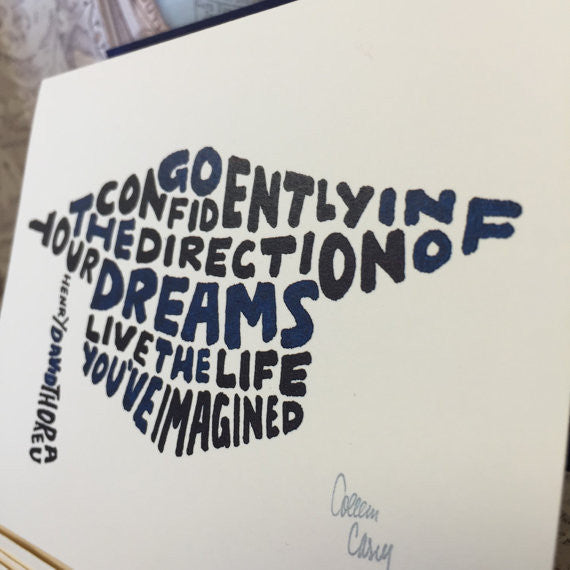 GO
CONFIDENTLY IN
THE DIRECTION OF
YOUR
DREAMS
LIVE THE LIFE
YOU'VE IMAGINED
HENRY DAVID THOREAU
Colleen
Casey